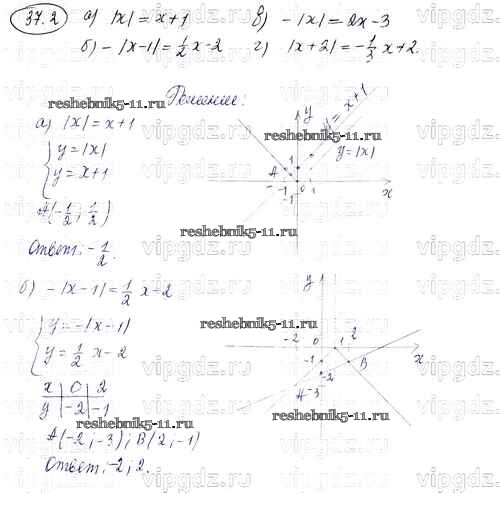 37.2 а) |x| = x+1 в) -|x| = 2x-3
б) -|x-1| = 1/2 x-2 г) |x+2| = -1/3 x+2.
Решение:
reshebnik5-11.ru
а) |x| = x+1
y = |x|
y = x+1
A(-1/2; 1/2)
Ответ: -1/2.
reshebnik5-11.ru
y
y = x+1
y = |x|
A
1
-1 0 1
-1
x
reshebnik5-11.ru
б) -|x-1| = 1/2 x-2
y = -|x-1|
y = 1/2 x-2
x 0 2
y -2 -1
A(-2; -3); B(2; -1)
Ответ: -2; 2.
reshebnik5-11.ru
y
-2 0 1 2
x
-1
B
-2
A -3
reshebnik5-11.ru
vipgdz.ru